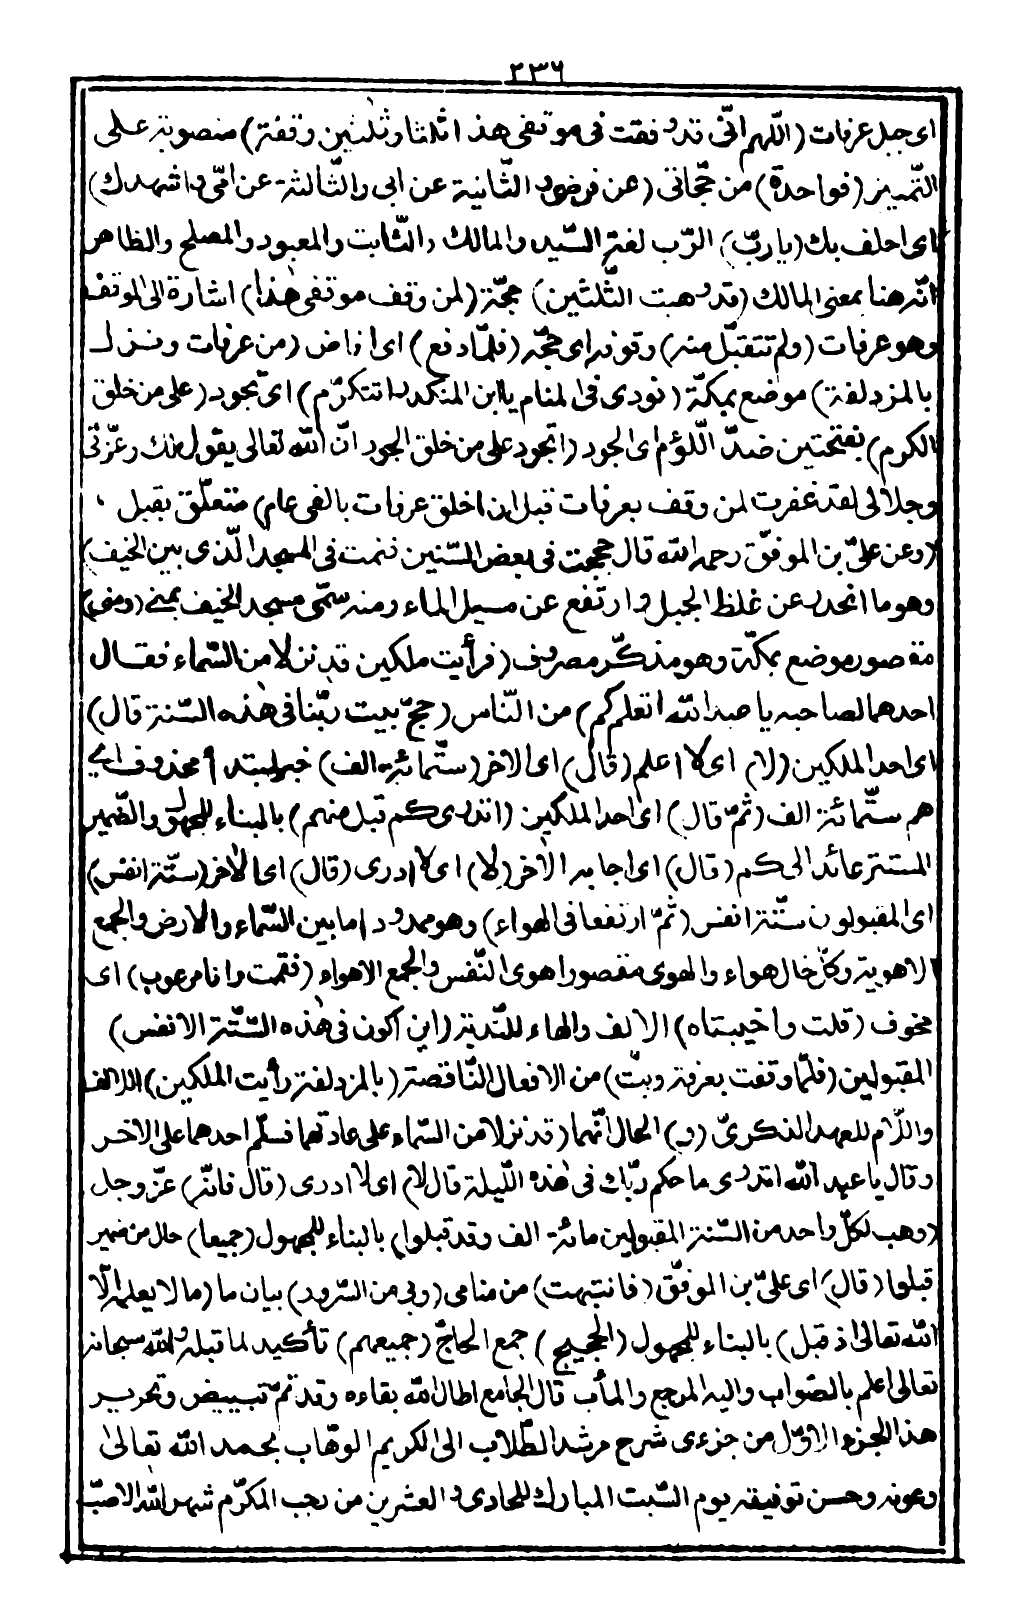 ٢٣٦
اى جبل عرفات (اللّهم انّى قد وقفت فى موقفى هذا ثلاثا وثلٰثين وقفة) منصوبة على
التّمييز (فواحدة) من حجّاتى (عن فرضى و الثّانية عن ابى والثّالثة عن امّى و اشهدك)
اى احلف بك (يا ربّ) الرّب لغة السّيد والمالك والثّابت والمعبود والمصلح والظاهر
انّه هنا بمعنى المالك (قد وهبت الثّلثين) حجّة (لمن وقف موقفى هٰذا) اشارة الى الموقف
وهو عرفات (ولم تتقبّل منه) وقوفه اى حجّه (فلمّا دفع) اى افاض (من عرفات ونزل
بالمزدلفة) موضع بمكّة (نودى فى المنام يا ابن المنكدر اتتكرّم) اى تجود (على من خلق
الكرم) بفتحتين ضدّ اللّؤم اى الجود (اتجود على من خلق الجود انّ اللّه تعالى يقول لك وعزّتى
وجلالى لقد غفرت لمن وقف بعرفات قبل ان اخلق عرفات بالفى عام) متعلّق بقبل
(وعن علىّ بن الموفّق رحمه اللّه قال حججت فى بعض السّنين فنمت فى المسجد الّذى بين الخيف)
وهو ما انحدر عن غلظ الجبل و ارتفع عن مسيل الماء ومنه سمّى مسجد الخيف بمنى (ومنى)
مقصور موضع بمكّة وهو مذكّر مصروف (فرأيت ملكين قد نزلا من السّماء فقال
احدهما لصاحبه يا عبد اللّه اتعلم كم) من النّاس (حجّ بيت ربّنا فى هٰذه السّنة قال)
اى احد الملكين (لا) اى لا اعلم (قال) اى الاخر (ستّمائة الف) خبر لمبتدأ محذوف اى
هم ستّمائة الف (ثمّ قال) اى احد الملكين (اتدرى كم قبل منهم) بالبناء للمجهول والضّمير
المستتر عائد الى كم (قال) اى اجابه الآخر (لا) اى لا ادرى (قال) اى الآخر (ستّة انفس)
اى المقبولون ستّة انفس (ثمّ ارتفعا فى الهواء) وهو ممدود ما بين السّماء والارض والجمع
الاهوية وكلّ خال هواء والهوى مقصورا هوى النّفس والجمع الاهواء (فقمت وانا مرعوب) اى
مخوف (قلت واخيبتاه) الالف والهاء للنّدبة (اين اكون فى هٰذه السّتّة الانفس)
المقبولين (فلمّا وقفت بعرفة وبتّ) من الافعال النّاقصة (بالمزدلفة رأيت الملكين) الالف
واللّام للعهد الذكرىّ (و) الحال انّهما (قد نزلا من السّماء على عادتهما فسلّم احدهما على الاخر
وقال يا عبد اللّه اتدرى ما حكم ربّك فى هٰذه اللّيلة قال لا) اى لا ادرى (قال فانّه) عزّ وجل
(وهب لكلّ واحد من السّتة المقبولين مائة الف وقد قبلوا) بالبناء للمجهول (جميعا) حال من ضمير
قبلوا (قال) اى علىّ بن الموفّق (فانتبهت) من منامى (وبى من السّرور) بيان ما (ما لا يعلمه الّا
اللّه تعالى اذ قبل) بالبناء للمجهول (الحجيج) جمع الحاجّ (جميعهم) تأكيد لما قبله واللّه سبحانه
تعالى اعلم بالصّواب واليه المرجع والمآب قال الجامع اطال اللّه بقاءه وقد تمّ تبييض وتحرير
هذا الجزء الاوّل من جزءى شرح مرشد الطّلاب الى الكريم الوهّاب بحمد اللّه تعالىٰ
وعونه وحسن توفيقه يوم السّبت المبارك للحادى و العشرين من رجب المكرّم شهر اللّه الاصبّ